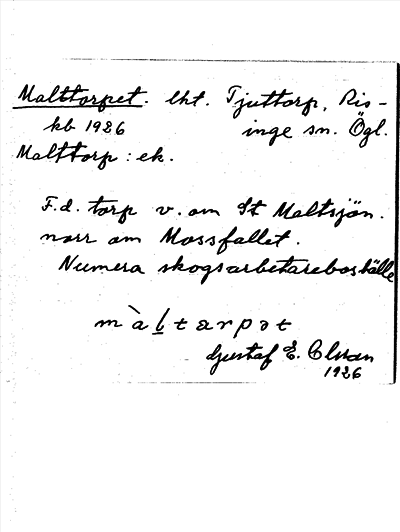 Malttorpet. lht. Tjuttorp, Ris-
kb 1926 inge sn. Ögl.
Malttorp : ek.
F.d. torp v. om St Maltsjön.
norr om Mossfallet.
Numera skogsarbetareboställe
màḷtarpət
Gustaf E. Olsson
1926